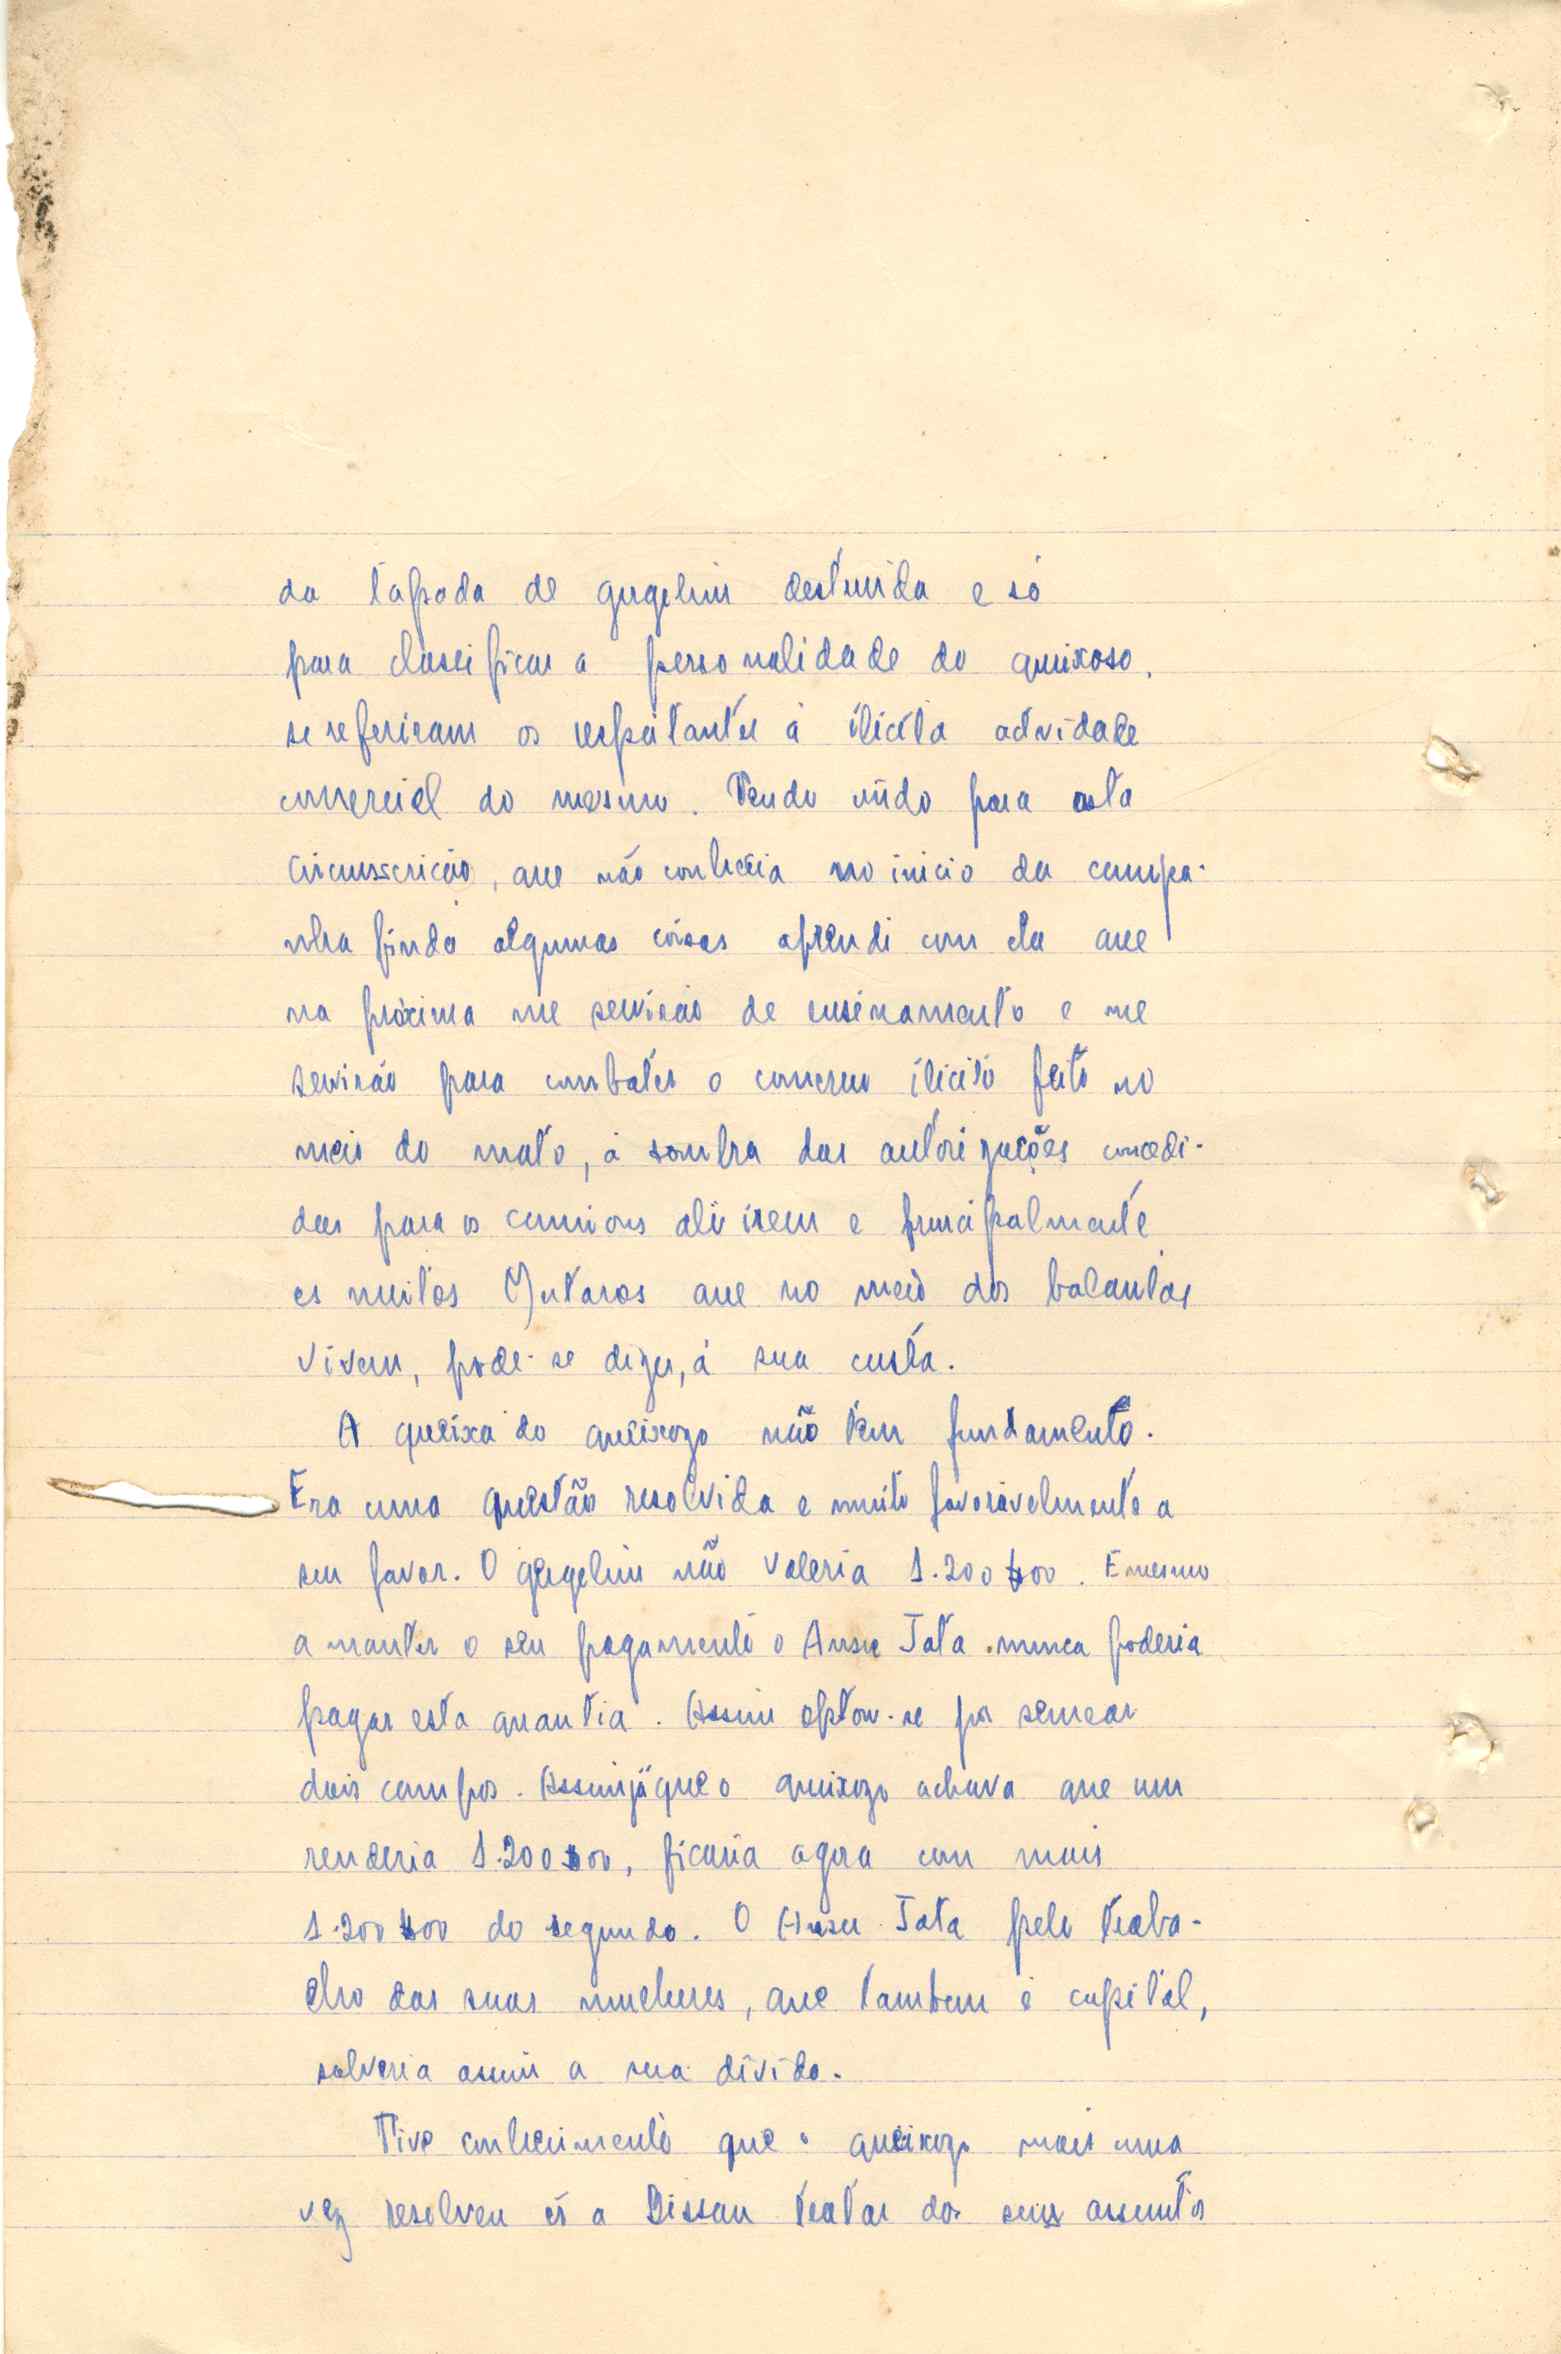 da tapada de gergelim destruida e só
para classificar a personalidade do queixoso,
se referiram os respeitantes á ilicita actividade
comercial do mesmo. Tendo vindo para esta
Circunscrição, que não conhecia no inicio da campa-
nha finda algumas coisas aprendi com ela que
na próxima me servirão de ensinamento e me
servirão para combater o comercio ilicito feito no
meio do mato, á sombra das autorizações concedi-
das para os camions ali irem e principalmente
os muitos Mutaros que no meio dos balantas
vivem, pode-se dizer, á sua custa.
A queixa do queixozo não tem fundamento.
Era uma questão resolvida e muito favoravelmente a
seu favor. O gergelim não valeria 1.200$00. E mesmo
a manter o seu pagamento o Ansu Tata nunca poderia
pagar esta quantia. Assim optou-se por semear
dois campos. Assim já que o queixozo achava que um
renderia 1.200$00, ficaria agora com mais
1.200$00 do segundo. O Ansu Tata pelo traba-
lho das suas mulheres, que tambem é capital,
solveria assim a sua divida.
Tive conhecimento que o queixozo mais uma
vez resolveu ir a Bissau tratar dos seus assuntos